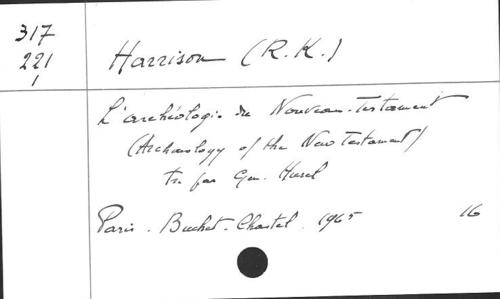 317
221
1
Harrison (R.K.)
L'archéologie du Nouveau-Testament
(Archaeology of the New Testament)
Tr. par Gen.
Paris. Buchet-Chastel. 1965 16